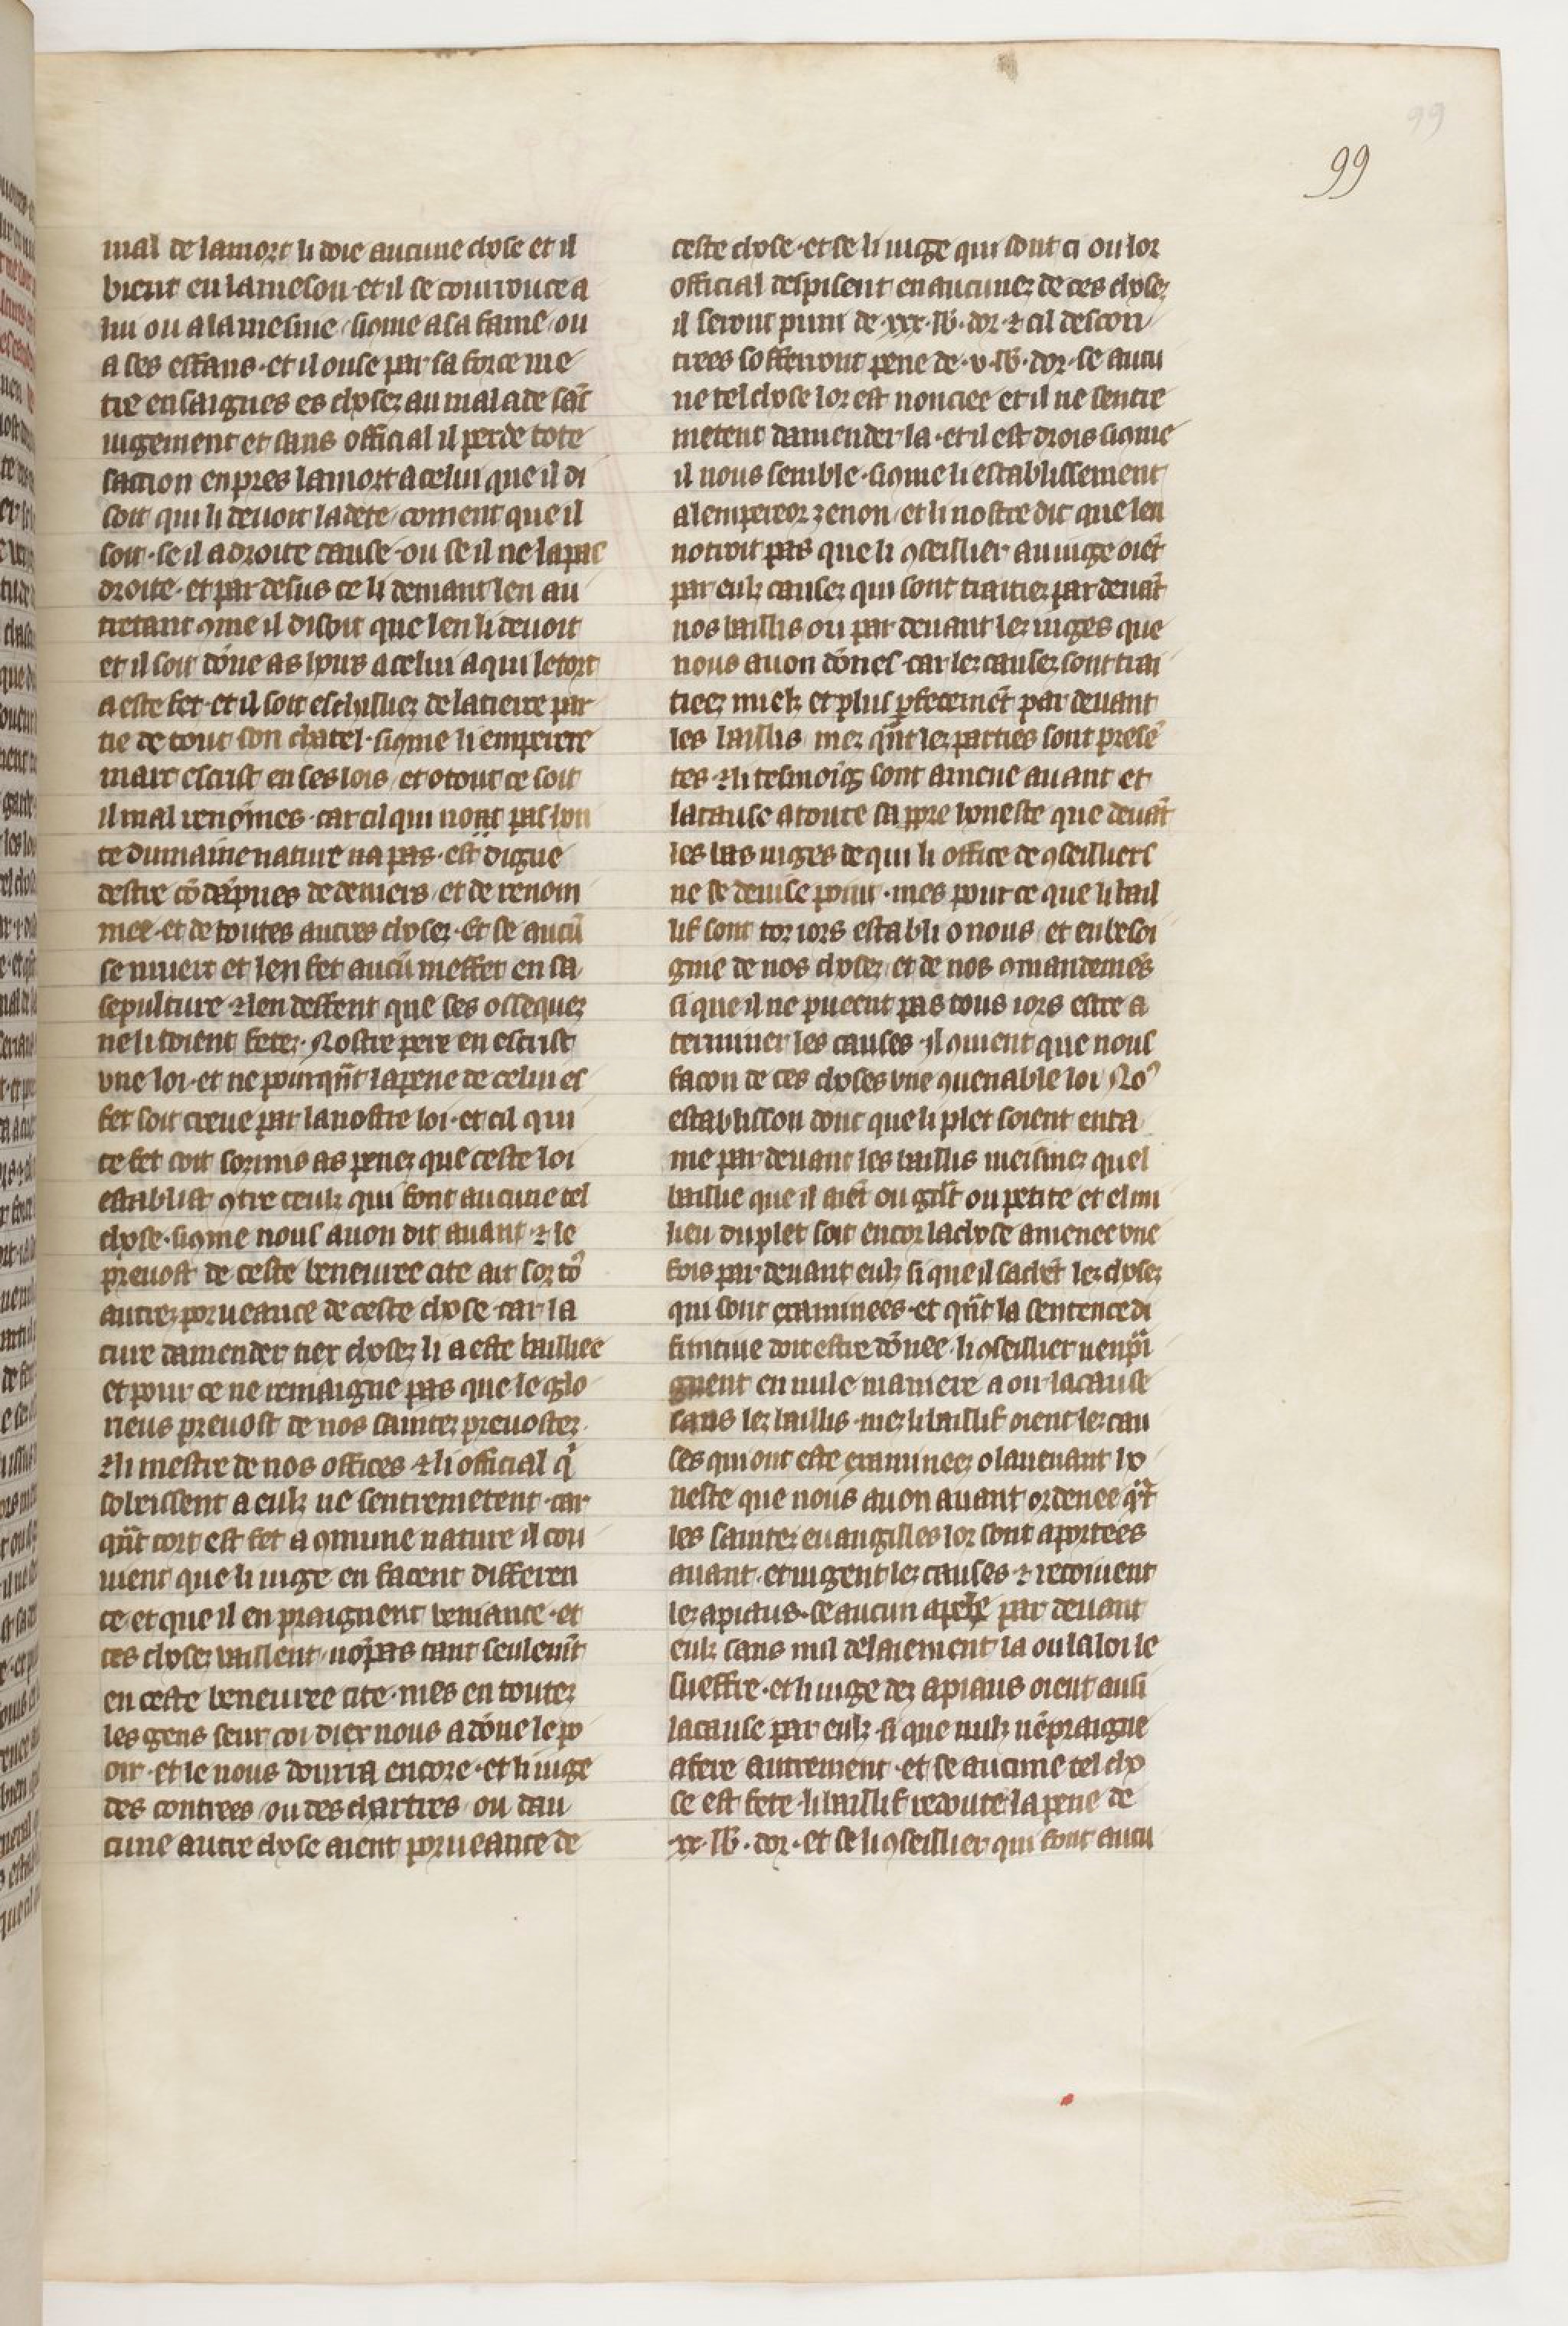 99
99
mal de lamort li doie aucune chose et il
vient en lameson et il se courrouce a
lui ou a la mesme sicome a sa fame ou
a ses effans et il ouse par sa force me
tre ensaignes es chosez au malade sãs
iugement et sans official il perde tote
saction enpres lamort a celui que il di
soit qui li devoit la dete coment que il
soit se il a droite cause ou se il ne la pas
droite et par desus ce li demant len au
tretant ꝯme il disoit que len li devoit
et il soit dõne as hoirs a celui a qui le tort
a este fet et il soit eschisiuez de la tierce par
tie de tout son chatel siꝯme li emperere
marc escrist en ses lois et o tout ce soit
il mal renõmes car cil qui nont pas hon
te dumaine nature na pas est digne
destre cõdãpnes de deniers et de renom
mee et de toutes autres chosez Et se aucũ
se muert et len fet aucũ meffet en sa
sepulture ⁊ len deffent que ses ossequez
ne li soient fetez Nostre pere en escrist
vne loi et ne pourqñt la pene de celui es
fet soit creue par la nostre loi et cil qui
ce fet soit sozmis as penez que ceste loi
establist ꝯtre ceulz qui font aucune tel
chose siꝯme nous auon dit auant ⁊ le
preuost de ceste beneuree cite ait sor to9
autrez porueance de ceste chose car la
cure damender tiex chosez li a este bailliee
et pour ce ne remaigne pas que le glo
rieus preuost de nos saintez preuostez
⁊ li mestre de nos offices ⁊ li official q̾
obeissent a eulz ne sentremetent car
qñt tort est fet a ꝯmune nature il cou
uient que li iuge en facent differen
ce et que il en praignent veniance et
ces chosez vaillent nõpas tant seulemẽt
en ceste beneuree cite mes en toutez
les gens seur coi diex nous a dõne le po
oir et le nous donrra encore et li iuge
des contrees ou des chartres ou dau
cune autre chose aient porueance de
ceste chose et se li iuge qui sont ci ou lor
official despisent en aucunez de ces chosez
il seront puni de xxx lb dor ⁊ cil des con
trees soffreront pene de v lb dor se aucu
ne tel chose lor est nonciee et il ne sentre
metent damender la et il est drois siꝯme
il nous semble siꝯme li establissement
al empereor zenon et li nostre dit que len
notroit pas que li ꝯseillier au iuge oiẽt
par eulz causez qui sont traitiez par deuãt
nos baillis ou par deuant lez iuges que
nous auon dõnes car lez causez sont trai
tieez mielz et plus ꝑfetemẽt par deuant
les baillis mez qñt lez parties sont presẽ
tes ⁊ li tesmoĩg sont amene auant et
la cause a toute sa ꝓpre honeste que deuãt
les bas iuges de qui li office de ꝯseilliers
ne se deuise point mes pour ce que li bail
lif sont toz iors establi o nous et en besoi
gne de nos chosez et de nos ꝯmandemẽs
si que il ne pueent pas tous iors estre a
terminer les causes il ꝯuient que nous
facon de ces choses vne ꝯuenable loi No9
establisson donc que li plet soient enta
me par deuant les baillis meismez quel
baillie que il aiẽt ou grãt ou petite et el mi
lieu du plet soit encor la chose amenee vne
fois par deuant eulz si que il sachẽt lez chosez
qui sont examinees et qñt la sentence di
finitiue doit estre dõnee li ꝯseillier nenpñ
gnent en nule maniere a oir la cause
sans lez baillis mez li baillif oient lez cau
ses qui ont este examineez o lauenant ho
neste que nous auon auant ordenee qñt
les saintez euangilles lor sont aportees
auant et iugent lez causes ⁊ recoiuent
lez apiaus se aucun apele par deuant
eulz sans nul delaiement la ou la loi le
sueffre et li iuge dez apiaus oient ausi
la cause par eulz si que nulz nẽpraigne
a fere autrement et se aucune tel cho
se est fete li baillif redoute la pene de
xx lb dor et se li ꝯseillier qui font aucu